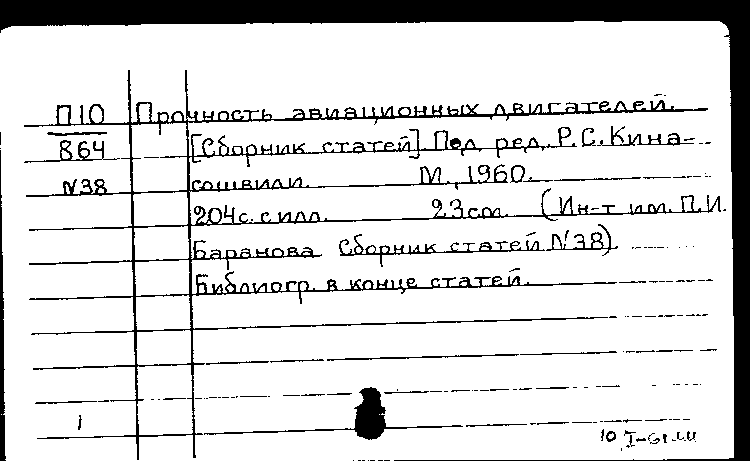 П10 Прочность авиационных двигателей.
864 [Сборник статей] Под ред. Р.С.Кина-
N38 сошвили. М., 1960.
204с. с илл. 23см. (Ин-т им. П.И.
Баранова Сборник статей N38).
Библиогр. в конце статей.
1
10 I-61